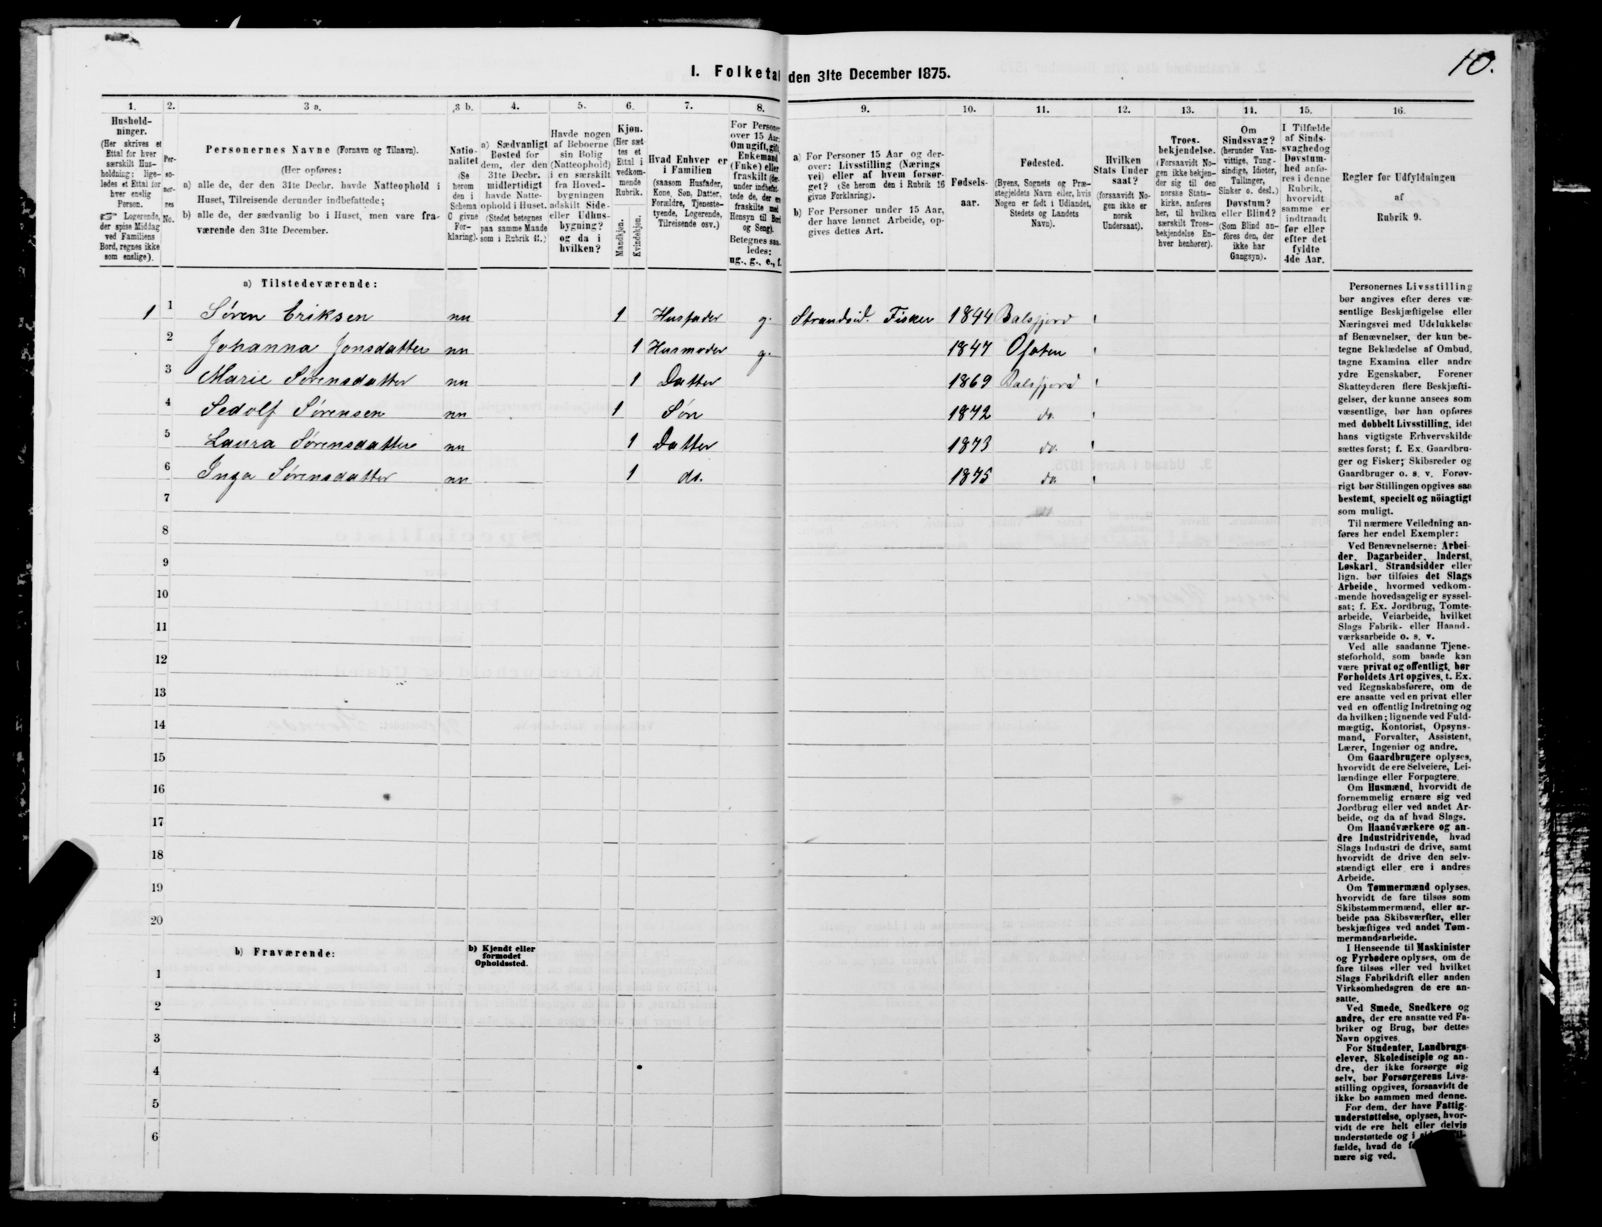 10.
1. Folketal den 31te December 1875.
1. 2. 3 a. 3 b. 4. 5. 6. 7. 8. 9. 10. 11. 12. 13. 14. 15. 16.
Hushold-
ninger.
(Her skrives et
Ettal for hver
særskilt Hus-
holdning; lige-
ledes et Ettal for
hver enslig
Person.
☞ Logerende,
der spise Middag
ved Familiens
Bord, regnes ikke
som enslige).
Per-
so-
ner-
nes
No.
Personernes Navne (Fornavn og Tilnavn).
(Her opføres:
a) alle de, der den 31te Decbr. havde Natteophold i
Huset, Tilreisende derunder indbefattede;
b) alle de, der sædvanlig bo i Huset, men vare fra-
værende den 31te December.
Natio-
nalitet
(Se
herom
den i
Schema
C givne
For-
klaring).
a) Sædvanligt
Bosted for
dem, der den
31te Decbr.
midlertidigt
havde Natte-
ophold i Huset.
(Stedet betegnes
paa samme Maade
som i Rubrik 11.)
Havde nogen
af Beboerne
sin Bolig
(Natteophold)
i en særskilt
fra Hoved-
bygningen
adskilt Side-
eller Udhus-
bygning?
og da i
hvilken?
Kjøn.
(Her sæt
tes et
Ettal i
vedkom-
mende
Rubrik.
Mandkjøn.
Kvindekjøn.
Hvad Enhver er
i Familien
(saasom Husfader,
Kone, Søn, Datter,
Forældre, Tjeneste-
tyende, Logerende,
Tilreisende osv.)
For Personer
over 15 Aar:
Om ugift, gift,
Enkemand
(Enke) eller
fraskilt (der-
under indbefat-
tede de, der ere
fraskilte med
Hensyn til Bord
og Seng).
Betegnes saa-
ledes:
ug., g., e., f.
a) For Personer 15 Aar og der-
over: Livsstilling (Nærings
vei) eller af hvem forsør-
get? (Se herom den i Rubrik 16
givne Forklaring).
b) For Personer under 15 Aar,
der have lønnet Arbeide, op-
gives dettes Art.
Fødsels-
aar.
Fødested.
(Byens, Sognets og Præ-
stegjeldets Navn eller, hvis
Nogen er født i Udlandet,
Stedets og Landets
Navn).
Hvilken
Stats Under
saat?
(forsaavidt No-
gen ikke er
norsk
Undersaat).
Troes-
bekjendelse.
(Forsaavidt No-
gen ikke bekjen-
der sig til den
norske Stats-
kirke, anføres
her, til hvilken
særskilt Troes-
bekjendelse En-
hver henhører).
Om
Sindssvag?
(herunder Van-
vittige, Tung-
sindige, Idioter,
Tullinger,
Sinker o. desl.)
Døvstum?
eller Blind?
(Som Blind an-
føres den, der
ikke har
Gangsyn).
I Tilfælde
af Sinds-
svaghed og
Døvstum-
hed anfø-
res i denne
Rubrik,
hvorvidt
samme er
indtraadt
før eller
efter det
fyldte
4de Aar.
Regler for Udfyldningen
af
Rubrik 9.
a) Tilstedeværende:
1 1 Søren Eriksen nn 1 Husfader g. Strandsid. Fisker 1844 Balsfjord
2 Johanna Jonsdatter nn 1 Husmoder g. 1847 Ofoten
3 Marie Sørensdatter nn 1 Datter 1869 Balsfjord
4 Sedolf Sørensen nn 1 Søn 1872 do.
5 Laura Sørensdatter nn 1 Datter 1873 do.
6 Inga Sørensdatter nn 1 do. 1875 do
7
8
9
10
11
12
13
14
15
16
17
18
19
20
b) Fraværende: b) Kjendt eller
formodet
Opholdssted.
1
2
3
4
5
6
Personernes Livsstilling
bør angives efter deres væ-
sentlige Beskjæftigelse eller
Næringsvei med Udelukkelse
af Benævnelser, der kun be-
tegne Beklædelse af Ombud,
tagne Examina eller andre
ydre Egenskaber. Forener
Skatteyderen flere Beskjæfti-
gelser, der kunne ansees som
væsentlige, bør han opføres
med dobbelt Livsstilling, idet
hans vigtigste Erhvervskilde
sættes først; f. Ex. Gaardbru-
ger og Fisker; Skibsreder og
Gaardbruger o. s. v. Forøv-
rigt bør Stillingen opgives saa
bestemt, specielt og nöiagtigt
som muligt.
Til nærmere Veiledning an-
føres her endel Exempler:
Ved Benævnelserne: Arbei-
der, Dagarbeider, Inderst,
Løskarl, Strandsidder eller
lign. bør tilføies det Slags
Arbeide, hvormed vedkom-
mende hovedsagelig er syssel-
sat; f. Ex. Jordbrug, Tomte-
arbeide, Veiarbeide, hvilket
Slags Fabrik- eller Haand-
værksarbeide o. s. v.
Ved alle saadanne Tjene-
steforhold, som baade kan
være privat og offentligt, bør
Forholdets Art opgives, t. Ex.
ved Regnskabsførere, om de
ere ansatte ved en privat eller
ved en offentlig Indretning og
da hvilken; lignende ved Fuld-
mægtig, Kontorist, Opsyns-
mand, Forvalter, Assistent,
Lærer, Ingeniør og andre.
Om Gaardbrugere oplyses,
hvorvidt de ere Selveiere, Lei-
lændinge eller Forpagtere.
Om Husmænd, hvorvidt de
fornemmelig ernære sig ved
Jordbrug eller ved andet Ar-
beide, og da af hvad Slags.
Om Haandværkere og an-
dre Industridrivende, hvad
Slags Industri de drive, samt
hvorvidt de drive den selv-
stændigt eller ere i andres
Arbeide.
Om Tømmermænd oplyses,
hvorvidt de fare tilsøs som
Skibstømmermænd, eller ar-
beide paa Skibsværfter, eller
beskjæftiges ved andet Tøm-
mermandsarbeide.
I Henseende til Maskinister
og Fyrbødere oplyses, om de
fare tilsøs eller ved hvilket
Slags Fabrikdrift eller anden
Virksomhedsgren de ere an-
satte.
Ved Smede, Snedkere og
andre, der ere ansatte ved Fa-
briker og Brug, bør dettes
Navn opgives.
For Studenter, Landbrugs-
elever, Skoledisciple og an-
dre, der ikke forsørge sig
selv, bør Forsørgerens Livs-
stilling opgives, forsaavidt de
ikke bo sammen med denne.
For dem, der have Fattig-
understøttelse, oplyses, hvor-
vidt de ere helt eller delvis
understøttede og i
fælde, hvad de
nære sig ved.